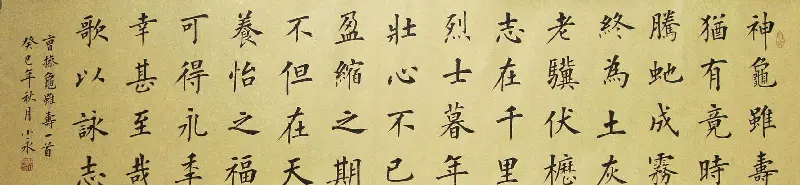 神龜雖壽
猶有竟時
騰虵成霧
終為土灰
老驥伏櫪
志在千里
烈士暮年
壯心不已
盈縮之期
不但在天
養怡之福
可得永年
幸甚至哉
歌以詠志
曹操龜雖壽一首
癸巳年秋月小永